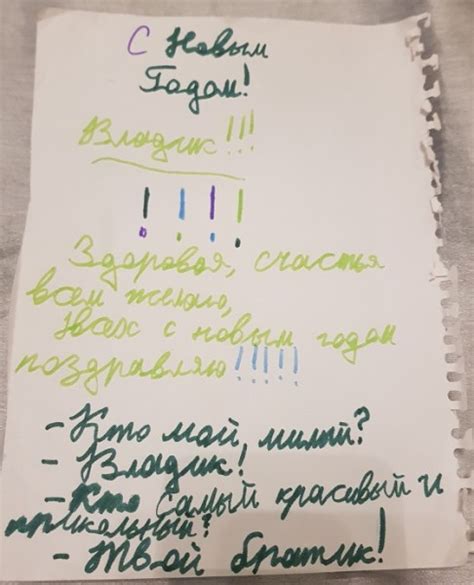 С Новым
Годом!
Владик!!!
!!!!
Здоровья, счастья
вам желаю,
Всех с новым годом
поздравляю!!!!!
- Кто мой, милый?
- Владик!
- Кто самый красивый и
прикольный?
- Твой братик!